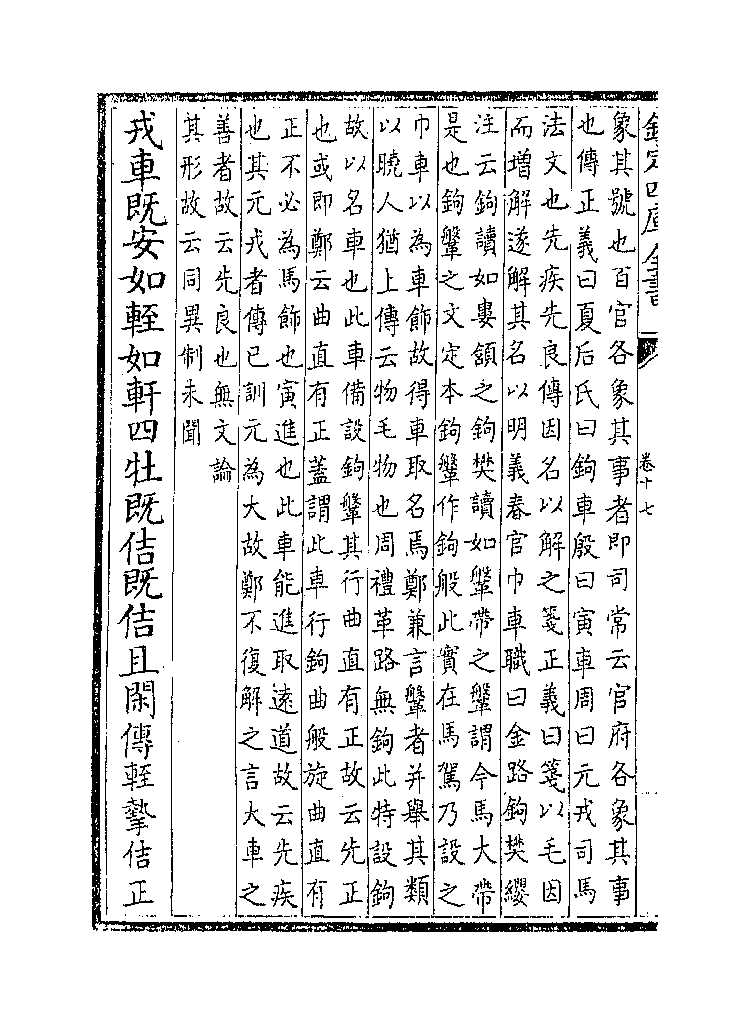 欽定四庫全書
卷十七
象其號也百官各象其事者即司常云官府各象其事
也傳正義曰夏后氏曰鉤車殷曰寅車周曰元戎司馬
法文也先疾先良傳因名以解之箋正義曰箋以毛因
而增解遂解其名以明義春官巾車職曰金路鉤樊纓
注云鉤讀如婁頷之鉤樊讀如鞶帶之鞶謂今馬大帶
是也鉤鞶之文定本鉤鞶作鉤般此實在馬駕乃設之
巾車以為車飾故得車取名焉鄭兼言鞶者并舉其類
以曉人猶上傳云物毛物也周禮革路無鉤此特設鉤
故以名車也此車備設鉤鞶其行曲直有正故云先正
也或即鄭云曲直有正蓋謂此車行鉤曲般旋曲直有
正不必為馬飾也寅進也此車能進取遠道故云先疾
也其元戎者傳已訓元為大故鄭不復解之言大車之
善者故云先良也無文論
其形故云同異制未聞
戎車既安如輊如軒四牡既佶既佶且閑傳輊摯佶正